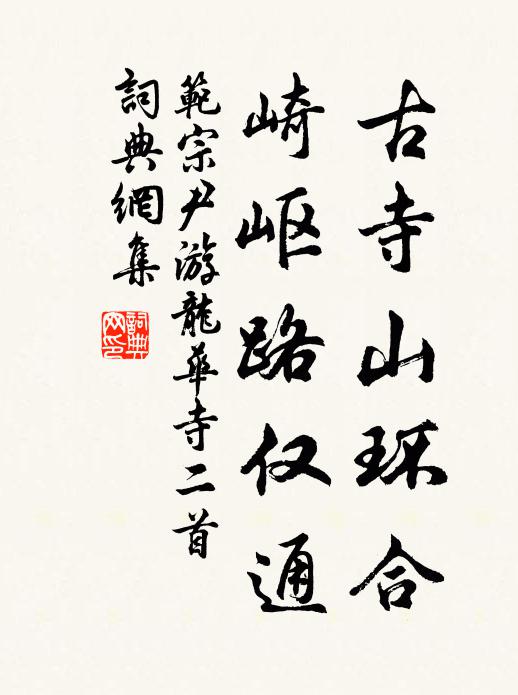 古寺山环合
崎岖路仅通
範宗尹游龍華寺二首
詞典網集
詞典
网印